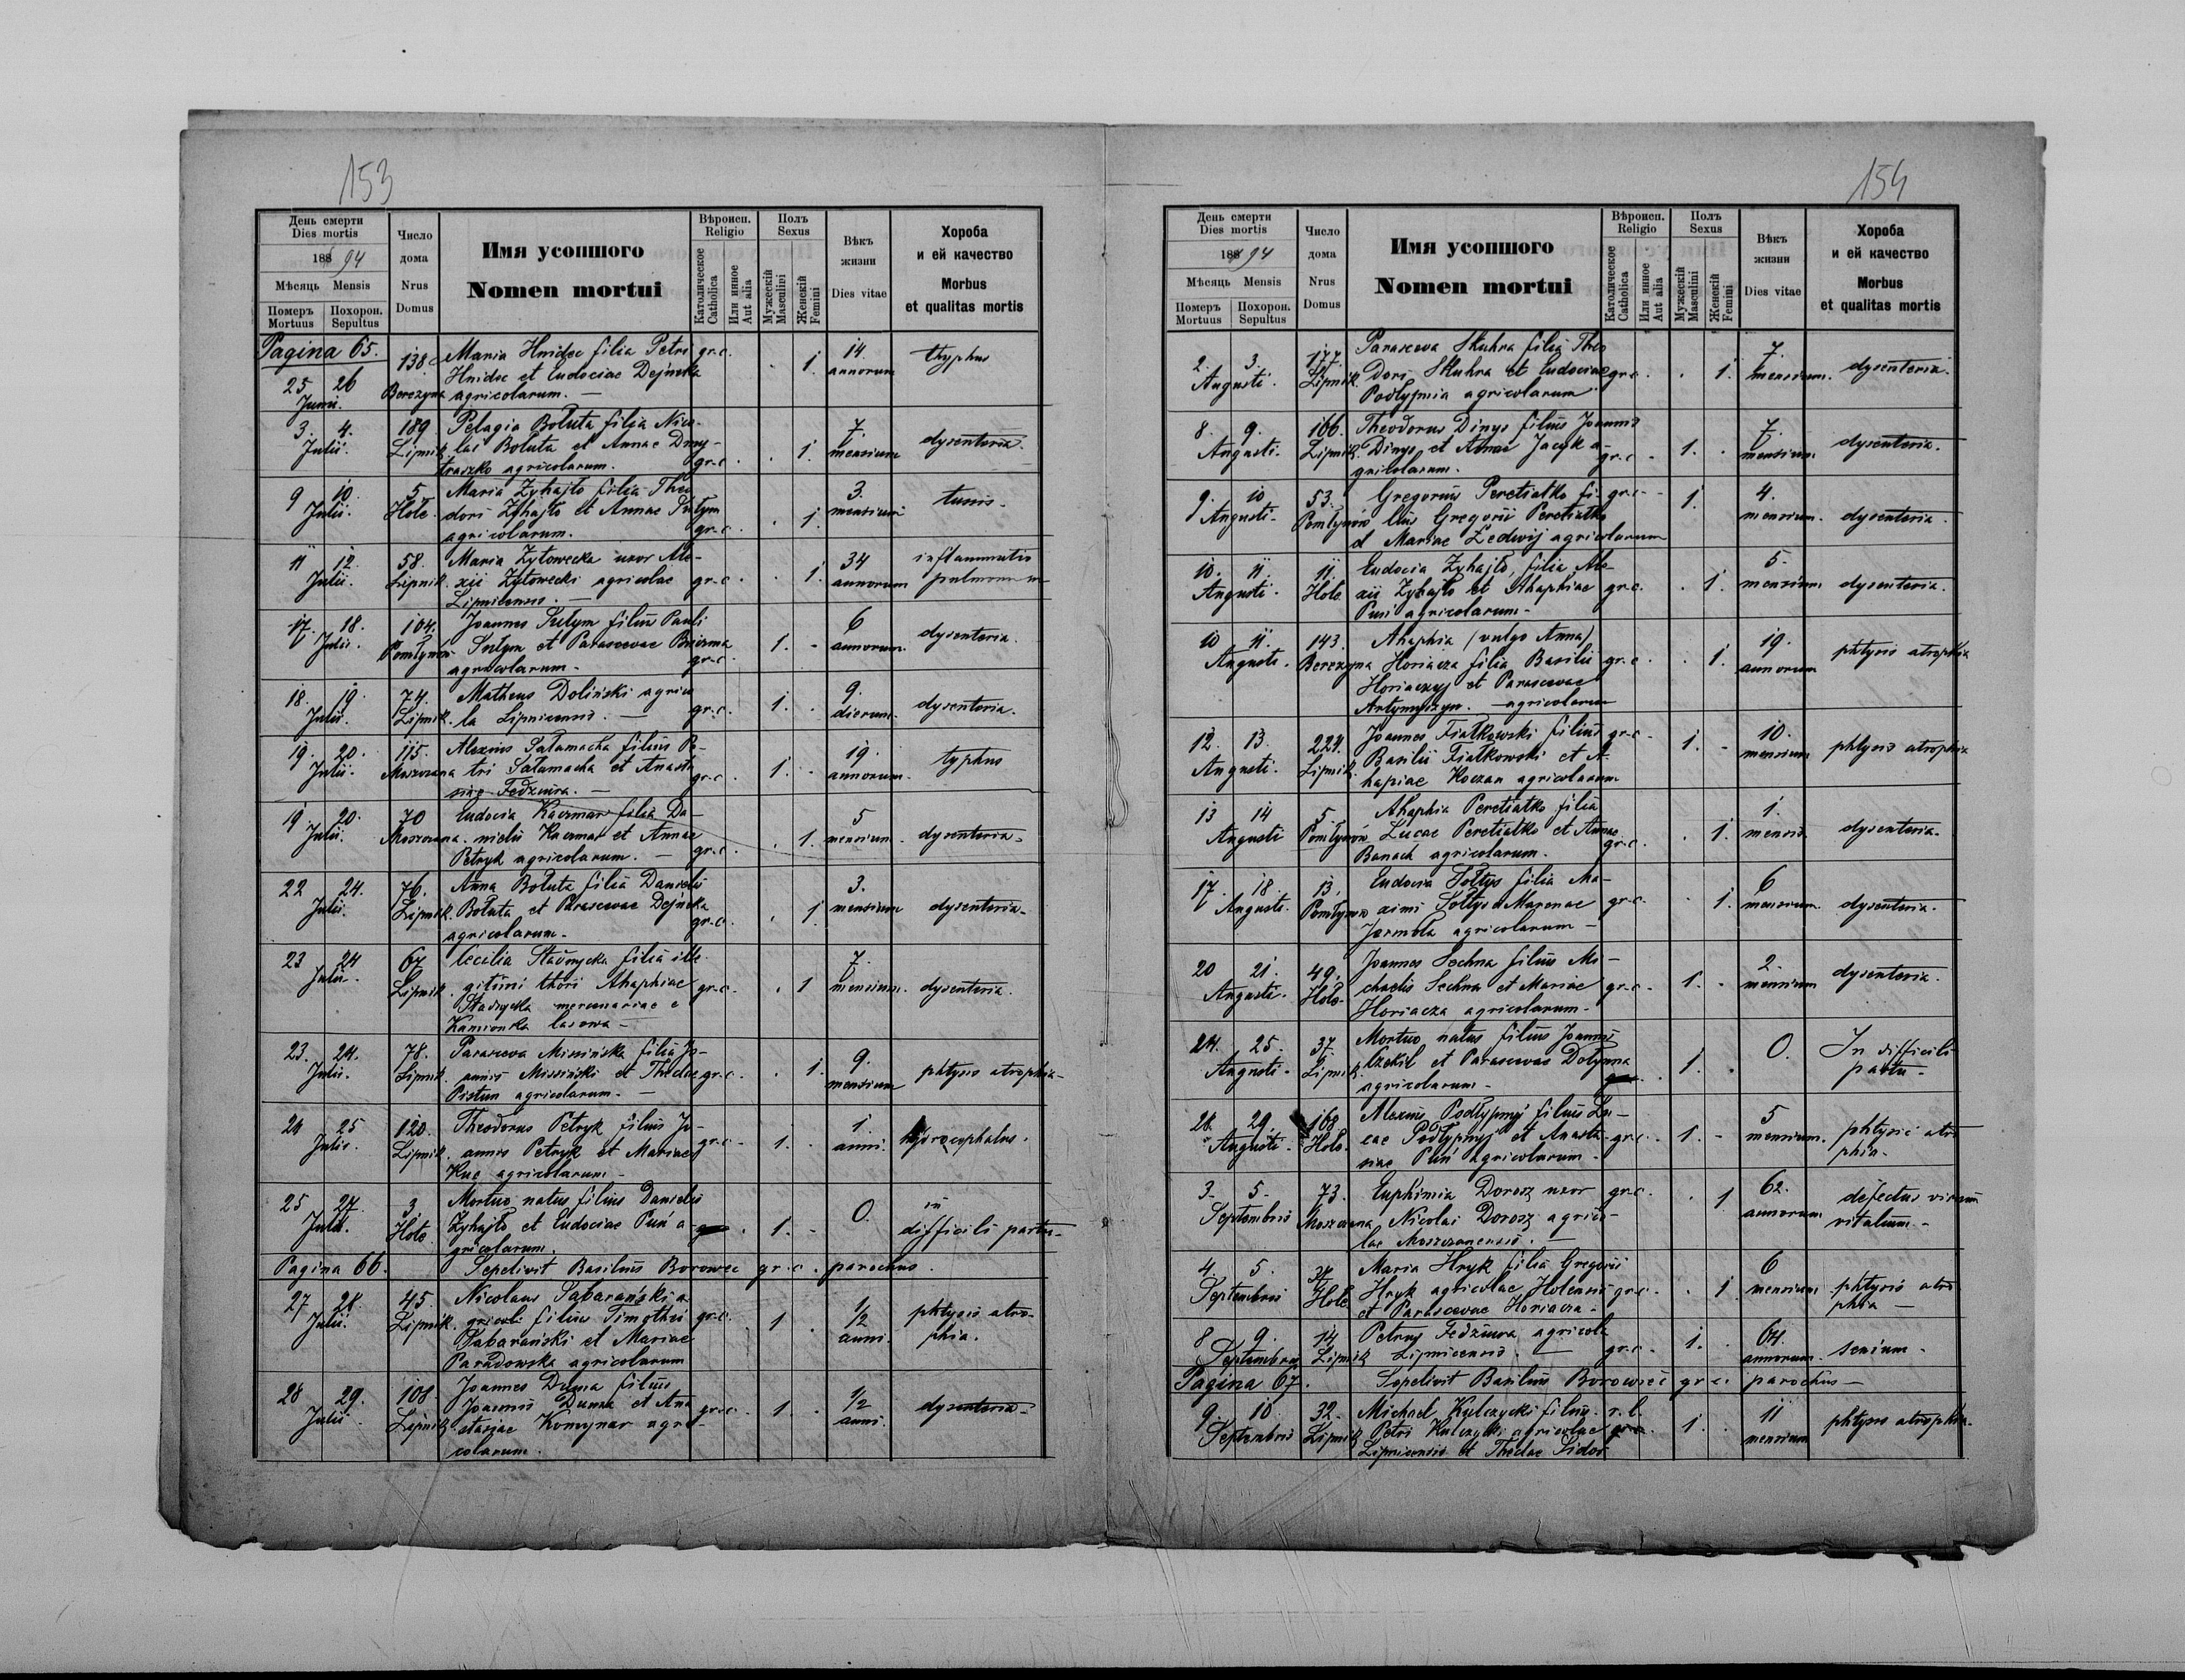 153
День смерти
Dies mortis
188 94
Мѣсяць Mensis
Померъ Похорон.
Mortuus Sepultus
Число
дома
Nrus
Domus
Имя усопшого
Nomen mortui
Вѣроисп.
Religio
Католическое
Catholica
Или инное
Aut alia
Полъ
Sexus
Мужескій
Masculini
Женскій
Femini
Вѣкъ
жизни
Dies vitae
Хороба
и ей качество
Morbus
et qualitas mortis
Pagina 65.
25 26 Junii. 138 Berezyna
Maria Hnidec filia Petri gr.c. 1. 14. annorum thyphus
Hnidec et Eudociae Dejneka
agricolarum. —
3. 4. Julii. 189 Lipnik
Pelagia Boluta filia Nico-
lai Boluta et Annae Dmy-
traszko agricolarum. gr.c. 1. 7. mensium dysenteria.
9 10. Julii. 5. Hole.
Maria Zyhajło filia Theo
dori Zyhajło et Annae Sutym
agricolarum. gr.c. 1. 3. mensium tussis.
11 12. Julii. 58. Lipnik.
Maria Zytowecka uxor Ale-
xii Zytowecki agricolae gr.c. 1. 34 annorum inflammatio pulmonum
Lipnicensis. —
17. 18. Julii. 104.
Joannes Sutym filius Pauli
Sutym et Parascevae
agricolarum. gr.c. 1. 6 annorum. dysenteria.
18. 19. Julii. 74. Lipnik.
Matheus Doliński agrico
la Lipnicensis. — gr.c. 1. 9. dierum. dysenteria.
19. 20. Julii. 115. Moszczana
Alexius Sałamacha filius Pe-
tri Sałamacha et Anasta
siae Fedziura. — gr.c. 1. 19. annorum. typhus
19 20. Julii. 70 Moszczana.
Eudocia Kaczmar filia Da-
nielis Kaczmar et Annae
Petryk agricolarum. — gr.c. 1. 5 mensium. dysenteria.
22 24. Julii. 76. Lipnik
Anna Boluta filia Danielis
Boluta et Parascevae Dejneka
agricolarum. gr.c. 1 3. mensium dysenteria.
23 24 Julii. 67 Lipnik.
Cecilia Stadnycka filia ille
gitimi thori Ahaphiae gr.c. 1 7. mensium. dysenteria.
Stadnycka mercenariae e
Kamionka lasowa —
23. 24. Julii. 78. Lipnik.
Parasceva Missińska filia Jo-
annis Missiński et Theclae gr.c. 1. 9. mensium phtysis atrophia.
Pistun agricolarum. —
24 25 Julii. 120. Lipnik.
Theodorus Petryk filius Jo-
annis Petryk et Mariae gr.c. 1. 1. anni. hydrocephalus.
Kuc agricolarum —
25 27. Julii. 3. Hole
Mortuo natus filius Danielis
Zyhajło et Eudociae Puń a-
gricolarum. 1. 0. in difficili partu.
Pagina 66. Sepelivit Basilius Borowec gr.c. parochus.
27 28. Julii. 45. Lipnik.
Nicolaus Tabarański a
gricola filius Timothei gr.c. 1 1/2 anni. phtysis atro-
Tabarański et Mariae phia.
Paradowska agricolarum
28 29. Julii 108. Lipnik
Joannes Duma filius
Joannis Duma et Ana gr.c. 1. 1/2 anni. dysenteria.
stasiae Komynar agri-
colarum.
154
День смерти
Dies mortis
188 94
Мѣсяць Mensis
Померъ Похорон.
Mortuus Sepultus
Число
дома
Nrus
Domus
Имя усопшого
Nomen mortui
Вѣроисп.
Religio
Католическое
Catholica
Или инное
Aut alia
Полъ
Sexus
Мужескій
Masculini
Женскій
Femini
Вѣкъ
жизни
Dies vitae
Хороба
и ей качество
Morbus
et qualitas mortis
2. 3. Augusti. 177. Lipnik
Parasceva Skuhra filia Theo
dori Skuhra et Eudociae gr.c. 1. 7. mensium. dysenteria.
Podłypnia agricolarum
8. 9. Augusti. 166. Lipnik
Theodorus Dinys filius Joannis
Dinys et Annae Jacyk a-
gricolarum. gr.c. 1. 7. mensium. dysenteria.
9. 10 Augusti. 53. Pomłynów
Gregorius Peretiatko fi- gr.c. 1. 4. mensium. dysenteria.
lius Gregorii Peretiatko
et Mariae Ledwij agricolarum
10. 11. Augusti. 11. Hole.
Eudocia Zyhajło, filia Ale-
xii Zyhajło et Ahaphiae gr.c. 1. 5. mensium dysenteria.
Puń agricolarum.
10 11. Augusti. 143. Berezyna
Ahaphia (vulgo Anna)
Horiacza filia Basilii gr.c. 1. 19. annorum phtysis atrophia
Horiaczyj et Parascevae
Artymyszyn. — agricolarum
12. 13. Augusti. 224. Lipnik.
Joannes Fiałkowski filius gr.c. 1. 10. mensium phtysis atrophia
Basilii Fiatkowski et A-
hapiae Koczan agricolarum
13 14 Augusti 5. Pomłynów
Ahaphia Peretiatko filia
Lucae Peretiatko et Annae
Banach agricolarum. gr.c. 1. 1. mensis. dysenteria.
17. 18. Augusti. 13.
Eudocia Sołtys filia Ma-
ximi Sołtys et Marenae gr.c. 1. 6 mensium. dysenteria.
Jarmoła agricolarum —
20 21. Augusti. 49. Hole.
Joannes Sechna filius Mi-
chaelis Sechna et Mariae gr.c. 1. 2. mensium dysenteria.
Horiacza agricolarum.
24. 25. Augusti. 37. Lipnik.
Mortuo natus filius Joannis
et Parascevae Dołynna
agricolarum. 1. 0. In difficili partu.
28. 29. Augusti. 168 Hole.
Alexius Podłypnyj filius Lu-
cae Podłypnyj et Anasta- gr.c. 1. 5 mensium. phtysis atro
siae Puń agricolarum. phia.
3. 5. Septembris 73. Moszczana
Euphimia Dorosz uxor gr.c. 1 62. annorum defectus virium
Nicolai Dorosz agrico- vitalium.
lae Moszczanensis. —
4. 5. Septembris Hole
Maria Hryk filia Gregorii
Hryk agricolae Holensis gr.c. 1 6 mensium phtysis atro
et Parascevae Horiacza. phia —
8 9. Septembris 14 Lipnik
Petrus Fedziura agricola
Lipnicensis. — gr.c. 1. 64. annorum. senium.
Pagina 67. Sepelivit Basilius Borowiec gr.c. parochus —
9. 10. Septembris 32. Lipnik
Michael Kulczycki filius r.l. 1. 11 mensium phtysis atrophia.
Petri Kulczycki agricolae
Lipnicensis et Theclae Sidor